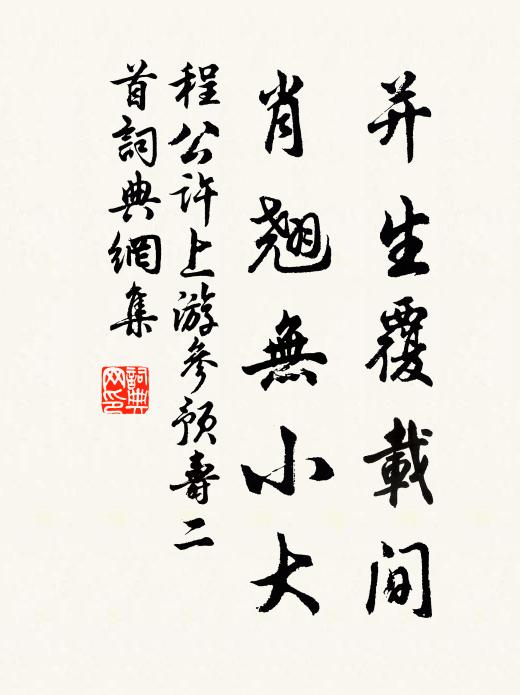 并生覆載间
肖翘無小大
程公许上游參预壽二
首詞典網集
詞典网印